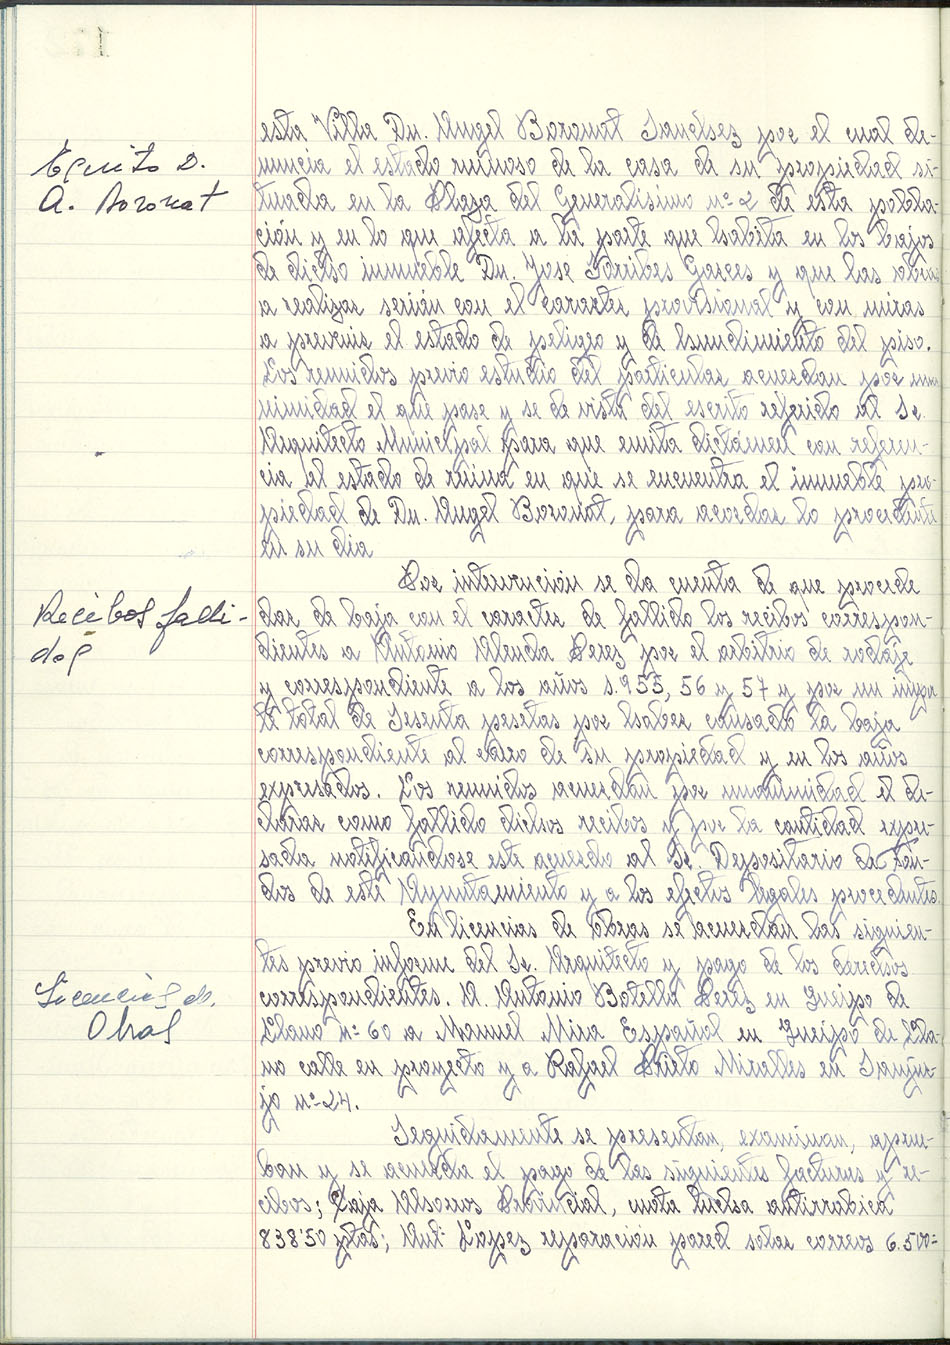 esta Villa Dn. Angel Boronat Sanchez por el cual de-
nuncia el estado ruinoso de la casa de su propiedad si-
tuada en la Plaza del Generalisimo nº 2 de esta pobla-
ción y en lo que afecta a la parte que habita en los bajos
de dicho inmueble Dn. Jose Garces y que las obras
a realizar serián con el caracter provisional y con miras
a prevenir el estado de peligro y de hundimiento del piso.
Los reunidos previo estudio del particular acuerdan por una
nimidad el que pase y se de vista del escrito referido al Sr.
Arquitecto Municipal para que emita dictámen con referen-
cia al estado de ruina en que se encuentra el inmueble pro-
piedad de Dn. Angel Boronat, para acordar lo procedente
en su dia
Escrito D.
A. Boronat
Por intervención se da cuenta de que procede
dar de baja con el caracter de fallido los recibos correspon-
dientes a Antonio Perez por el arbitrio de rodaje
y correspondiente a los años 1.955, 56 y 57 y por un impor
te total de Sesenta pesetas por haber causado la baja
correspondiente al carro de su propiedad y en los años
expresados. Los reunidos acuerdan por unanimidad el de-
clarar como fallido dichos recibos y por la cantidad expre-
sada notificandose este acuerdo al Sr. Depositario de Fon-
dos de este Ayuntamiento y a los efectos legales procedentes.
Recibos falli-
dos
En licencias de obras se acuerdan las siguien-
tes previo informe del Sr. Arquitecto y pago de los derechos
correspondientes. A. Antonio Botella Perez en Queipo de
Llano nº 60 a Manuel Mira Español en Queipo de Lla-
no calle en proyecto y a Rafael Prieto Miralles en Sanjur-
jo nº 24.
Licencias de
Obras
Seguidamente se presentan, examinan, aprue-
ban y se acuerda el pago de las siguientes facturas y re-
cibos; Caja Ahorros Provincial, cuota lucha antirrabica
838'50 ptas; Ant. Lopez reparación pared solar correos 6.500=